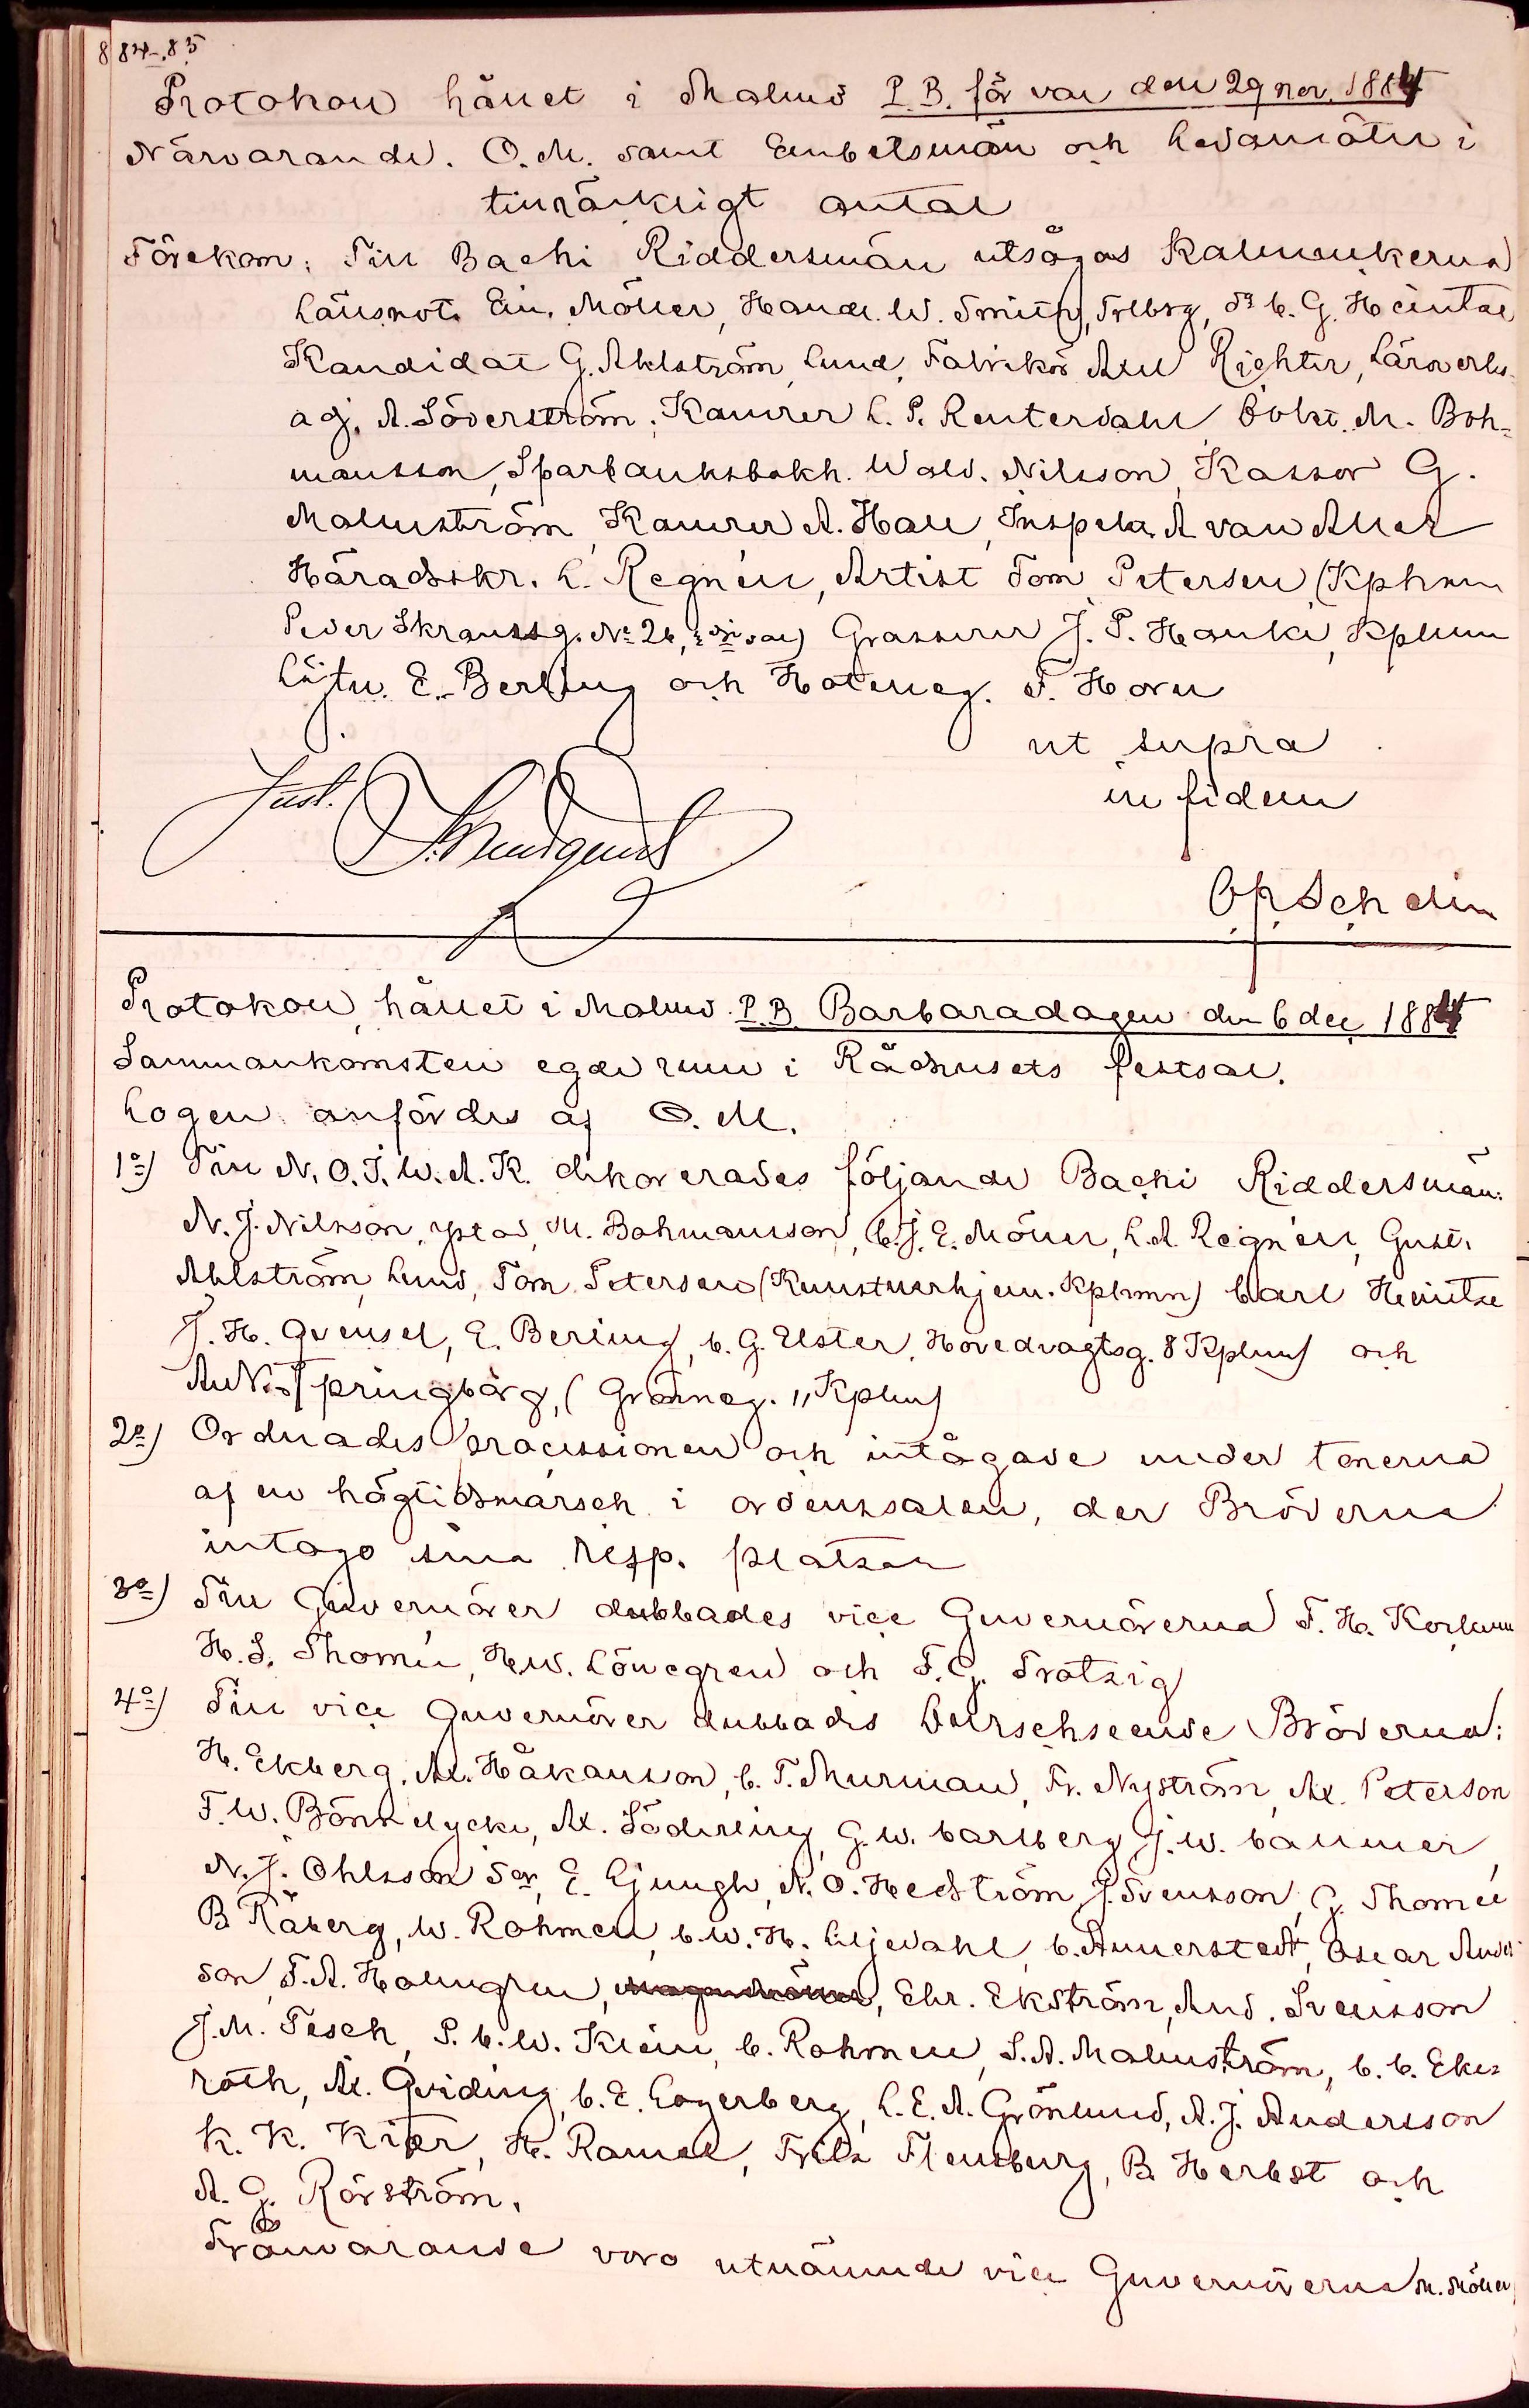 884-85
Protokoll hållet i Malmö P. B. för var den 29 nov. 1884
Närvarande. O. M. samt Embetsmän och Ledamöter i
tillräckligt antal
Förekom: Till Bachi Riddersmän utsågos Kalmukerna
Länsnot. Em. Möller, Handl. W. Smith, Trlbrg, Dr C. G. Heintze
Kandidat G. Ahlström, Lund, Fabrikör Axel Richter, Lärverks-
adj. A. Söderström, Kamrer L. P. Reuterdahl, Dokt. M. Boh-
mansson, Sparbanksbokh. Wald. Nilsson, Kassör G.
Malmström, Kamrer A. Hall, Inspekt. A van Aller
Häradsskr. L. Regnéll, Artist Tom Petersen (Kphmn
Peder Skramsg. No 26, sal) Grosserer J. P. Hanke, Kphmn
Löjtn. E. Berling och Hotelleg. F. Horn
ut supra
in fidem
Just.
Protokoll, hållet i Malmö P. B. Barbaradagen den 6 dec 1884
Sammankomsten egde rum i Rådhusets festsal.
Logen anfördes af O. M.
1o) Till N. O. J. W. A. K. dekorerades följande Bachi Riddersmän:
N. J. Nilsson, Ystad, M. Bohmansson, C. J. E. Möller, L. A. Regnéll, Gust.
Ahlström, Lund, Tom Petersen (Kunstnerhjem. Kphmn) Carl Heintze
J. H. Qvensel, E. Berling, C. G. Elster, Hovedvagtsg. 8 Kphmn) och
Aug. Springborg, (Grönneg. 11 Kphmn)
2o) Ordnades processionen och intågade under tonerna
af en högtidsmarsch i ordenssalen, der Bröderna
intogo sina resp. platser
3o) Till Guvernörer dubbades vice Guvernörerna F. H. Kockum
H. S. Thomée, H. W. Lönegren och F. G. Trotzig
4o) Till vice Guvernörer dubbades Dolrschseende Bröderna:
H. Ekberg, Ax. Håkanson, C. T. Murman, Fr. Nyström, Ax. Peterson
F. W. Bönnelycke, Ax. Söderling, G. W. Carlberg, J. W. Callmer,
N. J. Ohlsson Sor, E. Ljungh, N. O. Hedström, J. Svensson, G. Thomée
B Råberg, W. Rohmell, C. W. H. Liljedahl, C. Annerstedt, Oscar Anders
son, F. A. Holmgren, Chr. Ekström, And. Svensson
J. M. Tesch, P. C. W. Klein, C. Rohmell, S. A. Malmström, C. C. Eke-
roth, Ax. Qviding, C. E. Lagerberg, L. E. A. Grönlund, A. J. Andersson
K. K. Kiær, H. Ramel, Fritz Flensburg, B. Herbst och
A. G. Rörström.
Frånvarande voro utnämnde vice Guvernörerna M. Möller